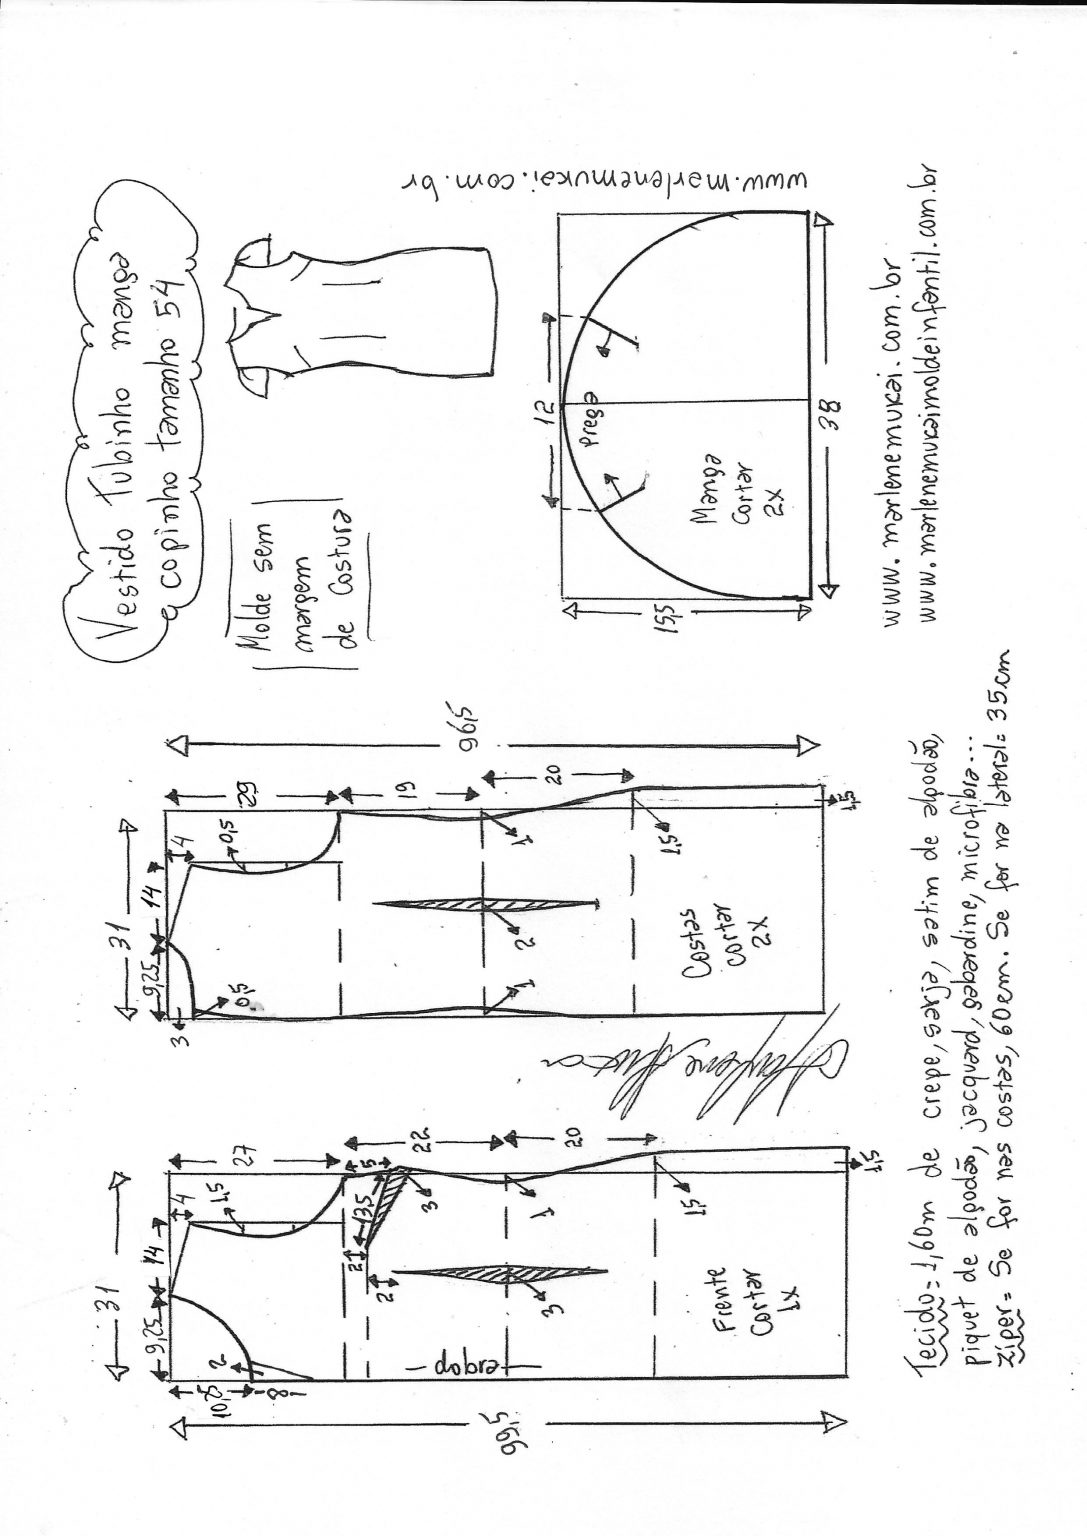 Vestido Tubinho manga
copinho tamanho 54
Molde sem
margem
de Costura
www.marlenemukai.com.br
99,5
10,8
8
2
31
9,25
14
4
1,5
27
5
13,5
3
2
2
22
1
20
1,5
3
dobra
Frente
Cortar
1x
1,5
96,5
31
3
9,25
14
4
0,5
0,5
29
19
20
1
2
1
1,5
Costas
Cortar
2x
1,5
12
Prega
15,5
38
Manga
Cortar
2x
www.marlenemukai.com.br
www.marlenemukaimoldeinfantil.com.br
Tecido= 1,60m de crepe, sarja, setim de algodão,
piquet de algodão, jacquard, gabardine, microfibra...
Ziper= Se for nas costas, 60cm. Se for na lateral= 35cm